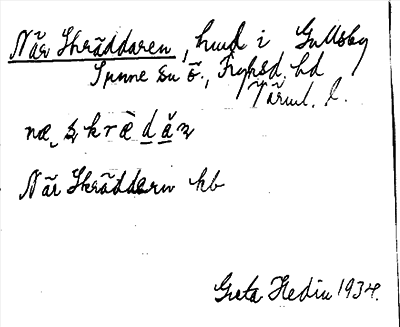 När Skräddaren, hmd i Gullsby
Sunne sn ö., Fryksd. hd
Värml. l.
næ ̨ s̨ k r æ̀ d ǎ n̨
När Skräddaren kb
Greta Hedin 1934.